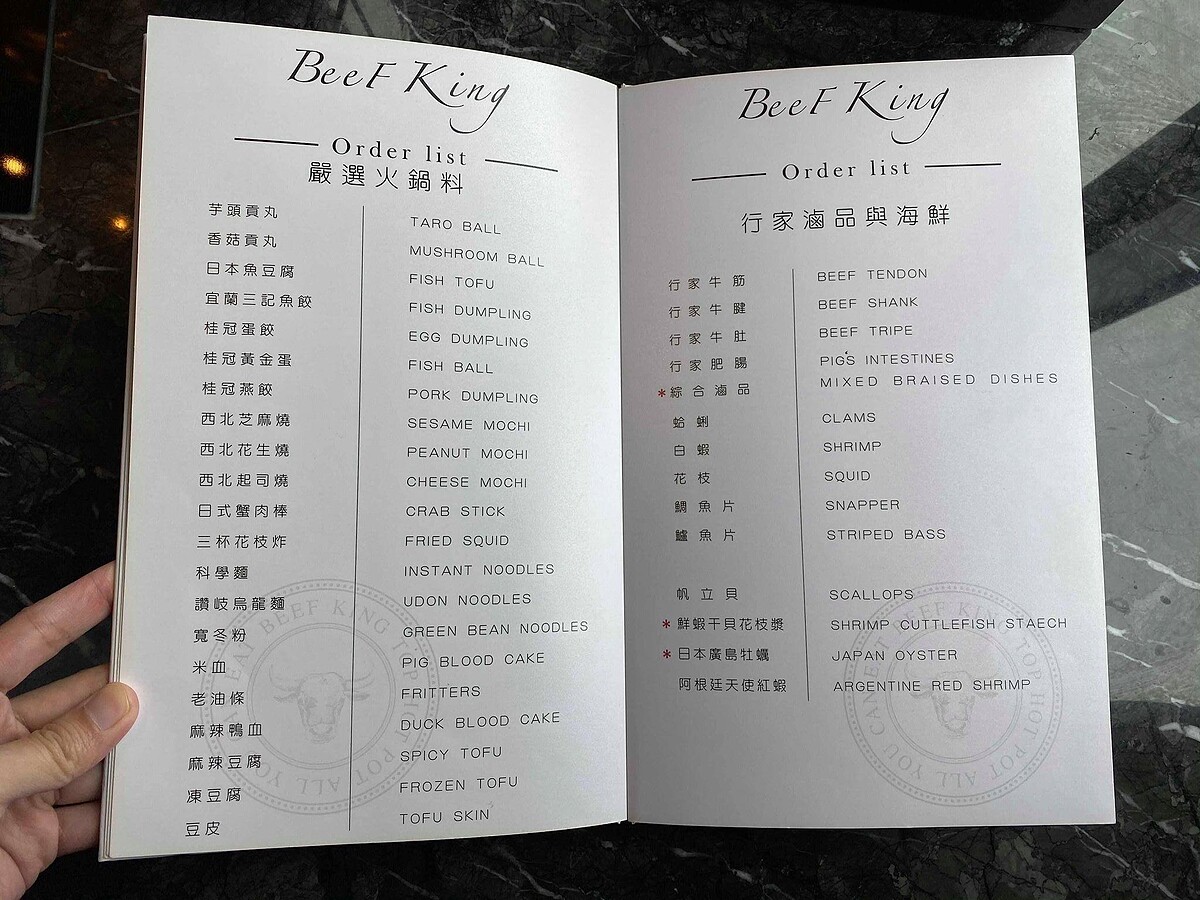 Beef King
Order list
嚴選火鍋料
芋頭貢丸 TARO BALL
香菇貢丸 MUSHROOM BALL
日本魚豆腐 FISH TOFU
宜蘭三記魚餃 FISH DUMPLING
桂冠蛋餃 EGG DUMPLING
桂冠黃金蛋 FISH BALL
桂冠燕餃 PORK DUMPLING
西北芝麻燒 SESAME MOCHI
西北花生燒 PEANUT MOCHI
西北起司燒 CHEESE MOCHI
日式蟹肉棒 CRAB STICK
三杯花枝炸 FRIED SQUID
科學麵 INSTANT NOODLES
讚岐烏龍麵 UDON NOODLES
寬冬粉 GREEN BEAN NOODLES
米血 PIG BLOOD CAKE
老油條 FRITTERS
麻辣鴨血 DUCK BLOOD CAKE
麻辣豆腐 SPICY TOFU
凍豆腐 FROZEN TOFU
豆皮 TOFU SKIN
BEEF KING TOP HOT POT ALL YOU CAN EAT
Beef King
Order list
行家滷品與海鮮
行家牛筋 BEEF TENDON
行家牛腱 BEEF SHANK
行家牛肚 BEEF TRIPE
行家肥腸 PIGS INTESTINES
*綜合滷品 MIXED BRAISED DISHES
蛤蜊 CLAMS
白蝦 SHRIMP
花枝 SQUID
鯛魚片 SNAPPER
鱸魚片 STRIPED BASS
帆立貝 SCALLOPS
*鮮蝦干貝花枝漿 SHRIMP CUTTLEFISH STAECH
*日本廣島牡蠣 JAPAN OYSTER
阿根廷天使紅蝦 ARGENTINE RED SHRIMP
BEEF KING TOP HOT POT ALL YOU CAN EAT